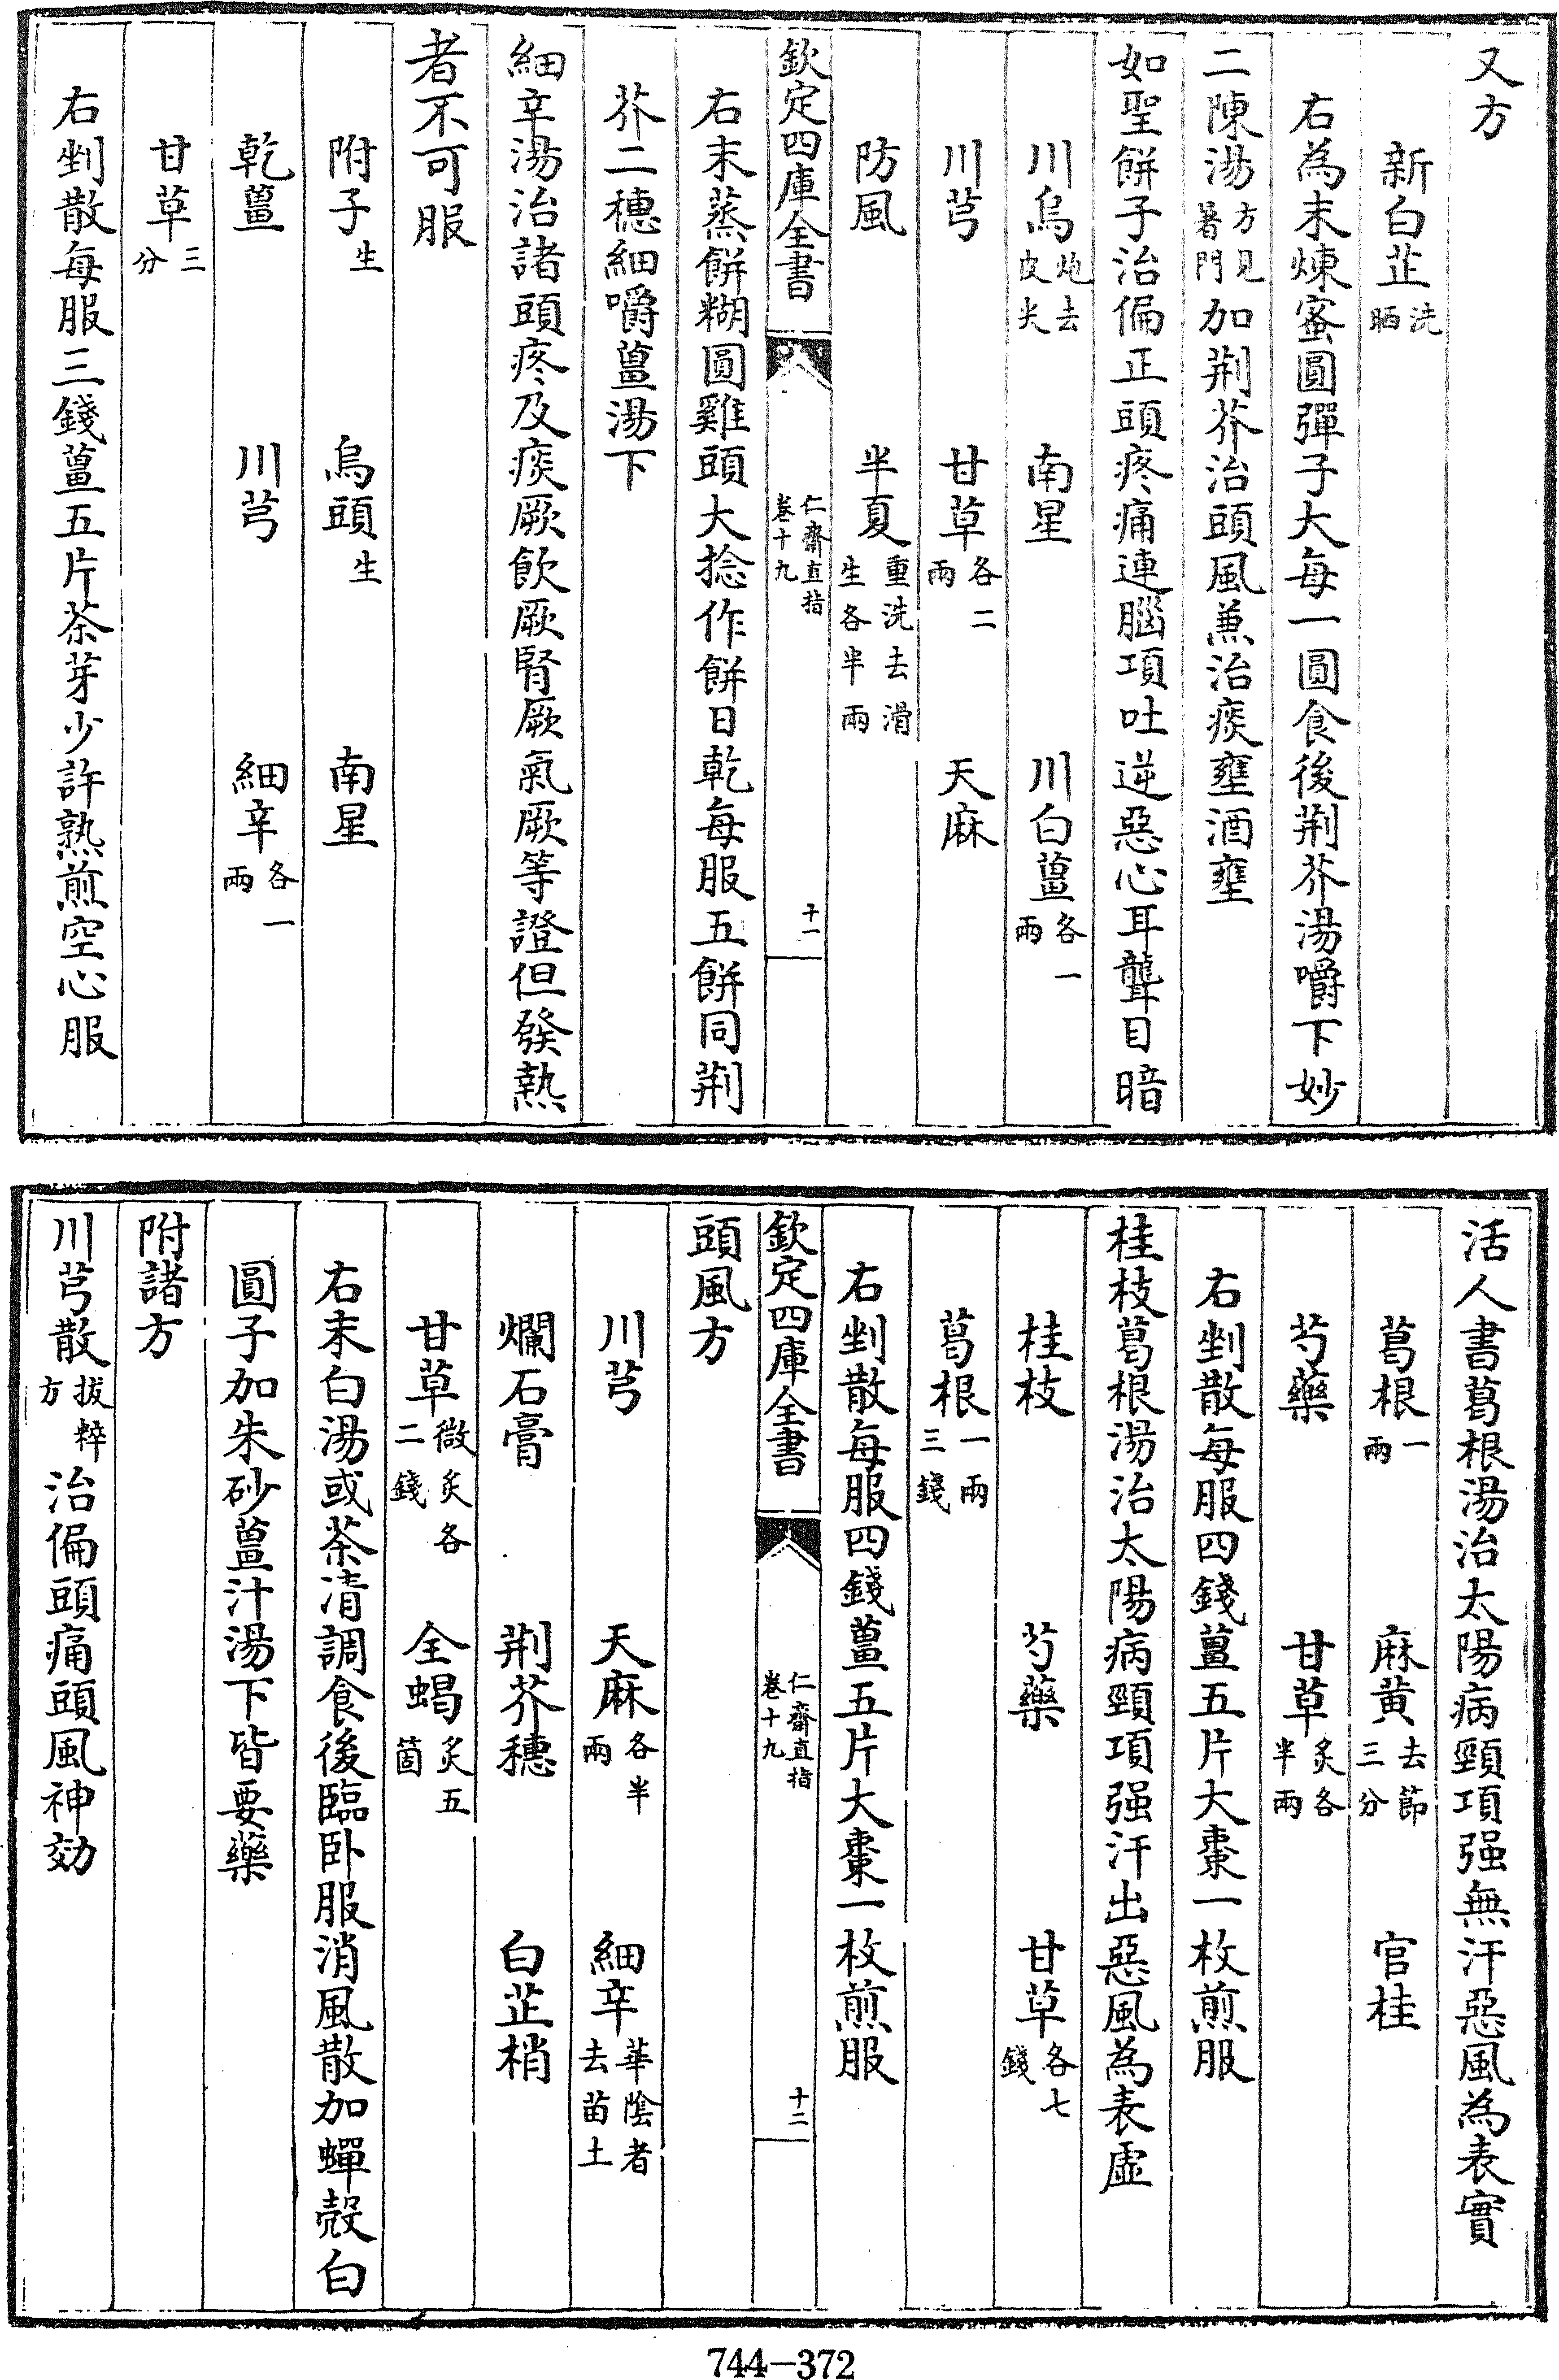 又方
新白芷洗晒
右為末煉蜜圓彈子大每一圓食後荆芥湯嚼下妙
二陳湯方見暑門加荆芥治頭風兼治痰壅酒壅
如聖餅子治偏正頭疼痛連腦項吐逆惡心耳聾目暗
川烏炮去皮尖 南星 川白薑各一兩
川芎 甘草各二兩 天麻
防風 半夏重洗去滑生各半兩
欽定四庫全書 仁齋直指卷十九 十一
右末蒸餅糊圓雞頭大捻作餅日乾每服五餅同荆
芥二穗細嚼薑湯下
細辛湯治諸頭疼及痰厥飲厥腎厥氣厥等證但發熱
者不可服
附子生 烏頭生 南星
乾薑 川芎 細辛各一兩
甘草三分
右剉散每服三錢薑五片茶芽少許熟煎空心服
活人書葛根湯治太陽病頸項强無汗惡風為表實
葛根一兩 麻黄去節三分 官桂
芍藥 甘草炙各半兩
右剉散每服四錢薑五片大棗一枚煎服
桂枝葛根湯治太陽病頸項强汗出惡風為表虛
桂枝 芍藥 甘草各七錢
葛根一兩三錢
右剉散每服四錢薑五片大棗一枚煎服
欽定四庫全書 仁齋直指卷十九 十二
頭風方
川芎 天麻各半兩 細辛華陰者去苗土
爛石膏 荆芥穗 白芷梢
甘草微炙各二錢 全蝎炙五箇
右末白湯或茶清調食後臨卧服消風散加蟬殼白
圓子加朱砂薑汁湯下皆要藥
附諸方
川芎散拔粹方治偏頭痛頭風神効
744-372